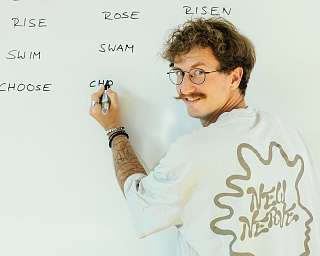 RISE ROSE RISEN
SWIM SWAM
CHOOSE CHO
NEW
NERVE.